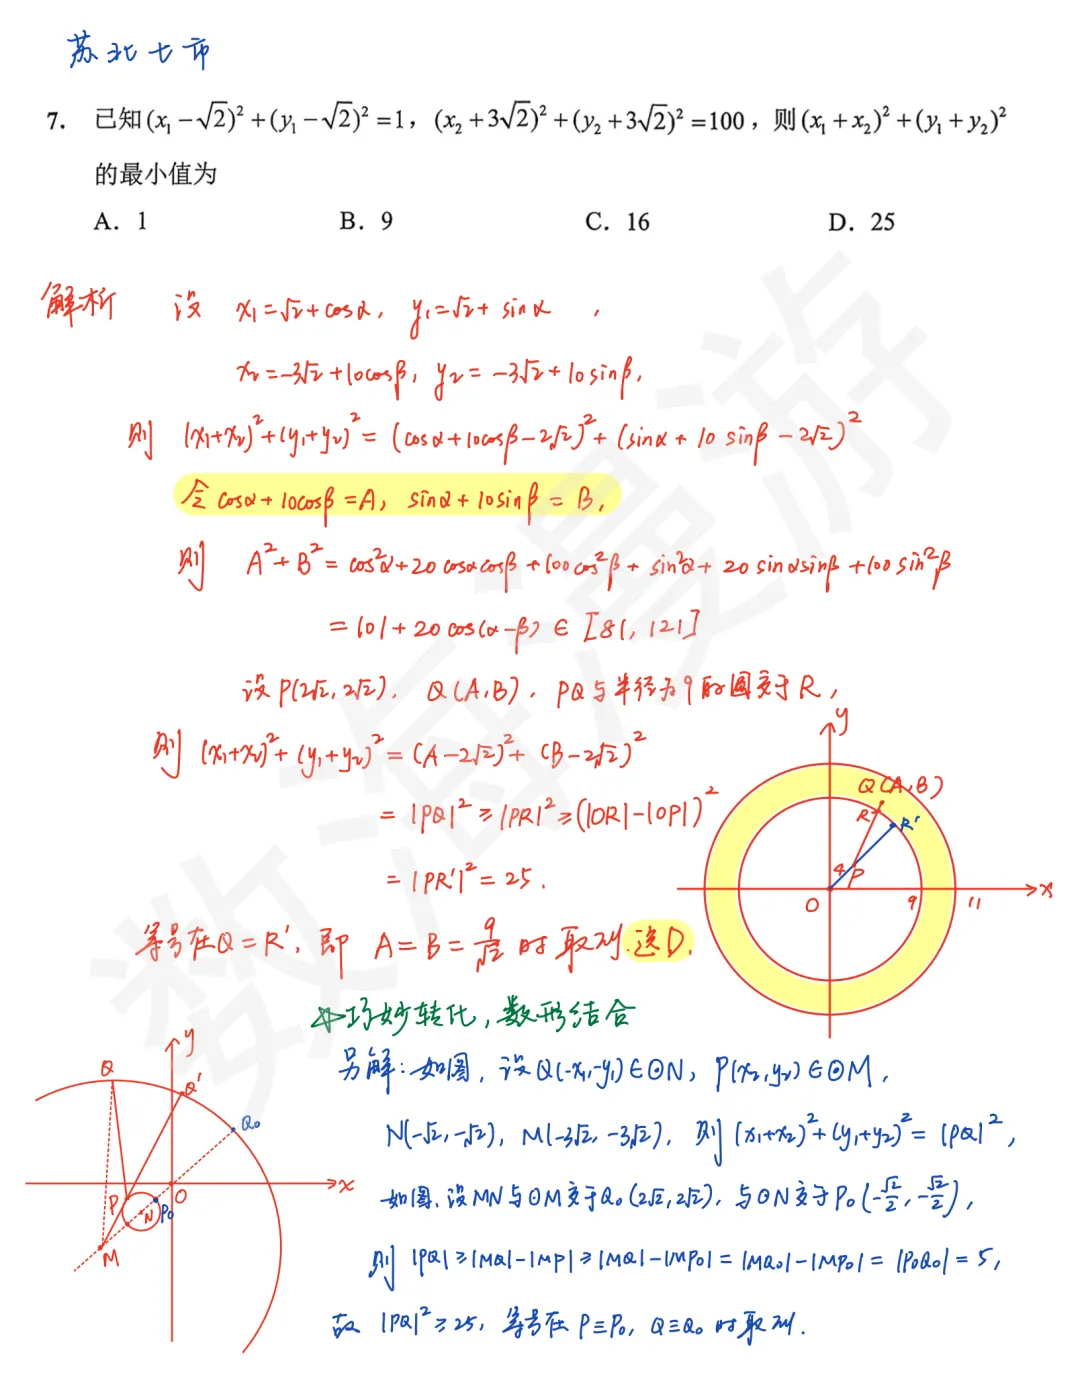 苏北七市
7. 已知(x₁-√2)²+(y₁-√2)²=1，(x₂+3√2)²+(y₂+3√2)²=100，则(x₁+x₂)²+(y₁+y₂)²
的最小值为
A．1 B．9 C．16 D．25
解析 设 x₁=√2+cosα, y₁=√2+sinα,
x₂=-3√2+10cosβ, y₂=-3√2+10sinβ.
则 (x₁+x₂)²+(y₁+y₂)²=(cosα+10cosβ-2√2)²+(sinα+10sinβ-2√2)²
令cosα+10cosβ=A, sinα+10sinβ=B,
则 A²+B²=cos²α+20cosαcosβ+100cos²β+sin²α+20sinαsinβ+100sin²β
=101+20cos(α-β)∈[81,121]
设P(2√2,2√2), Q(A,B), PQ与半径为9的圆交于R,
则 (x₁+x₂)²+(y₁+y₂)²=(A-2√2)²+(B-2√2)²
=|PQ|²≥|PR|²≥(|OR|-|OP|)²
=|PR'|²=25.
等号在Q=R', 即 A=B=9/√2 时取到.选D.
y
Q(A,B)
R R'
4 P
O 9 11 x
☆巧妙转化,数形结合
另解:如图,设Q(-x₁,-y₁)∈⊙N, P(x₂,y₂)∈⊙M,
N(-√2,-√2), M(-3√2,-3√2), 则(x₁+x₂)²+(y₁+y₂)²=|PQ|²,
如图,设MN与⊙M交于Q₀(2√2,2√2), 与⊙N交于P₀(-√2/2,-√2/2),
则|PQ|≥|MQ|-|MP|≥|MQ|-|MP₀|=|MQ₀|-|MP₀|=|P₀Q₀|=5,
故 |PQ|²≥25, 等号在P≡P₀, Q≡Q₀时取到.
y
Q Q'
Q₀
O x
P N P₀
M
数海漫游